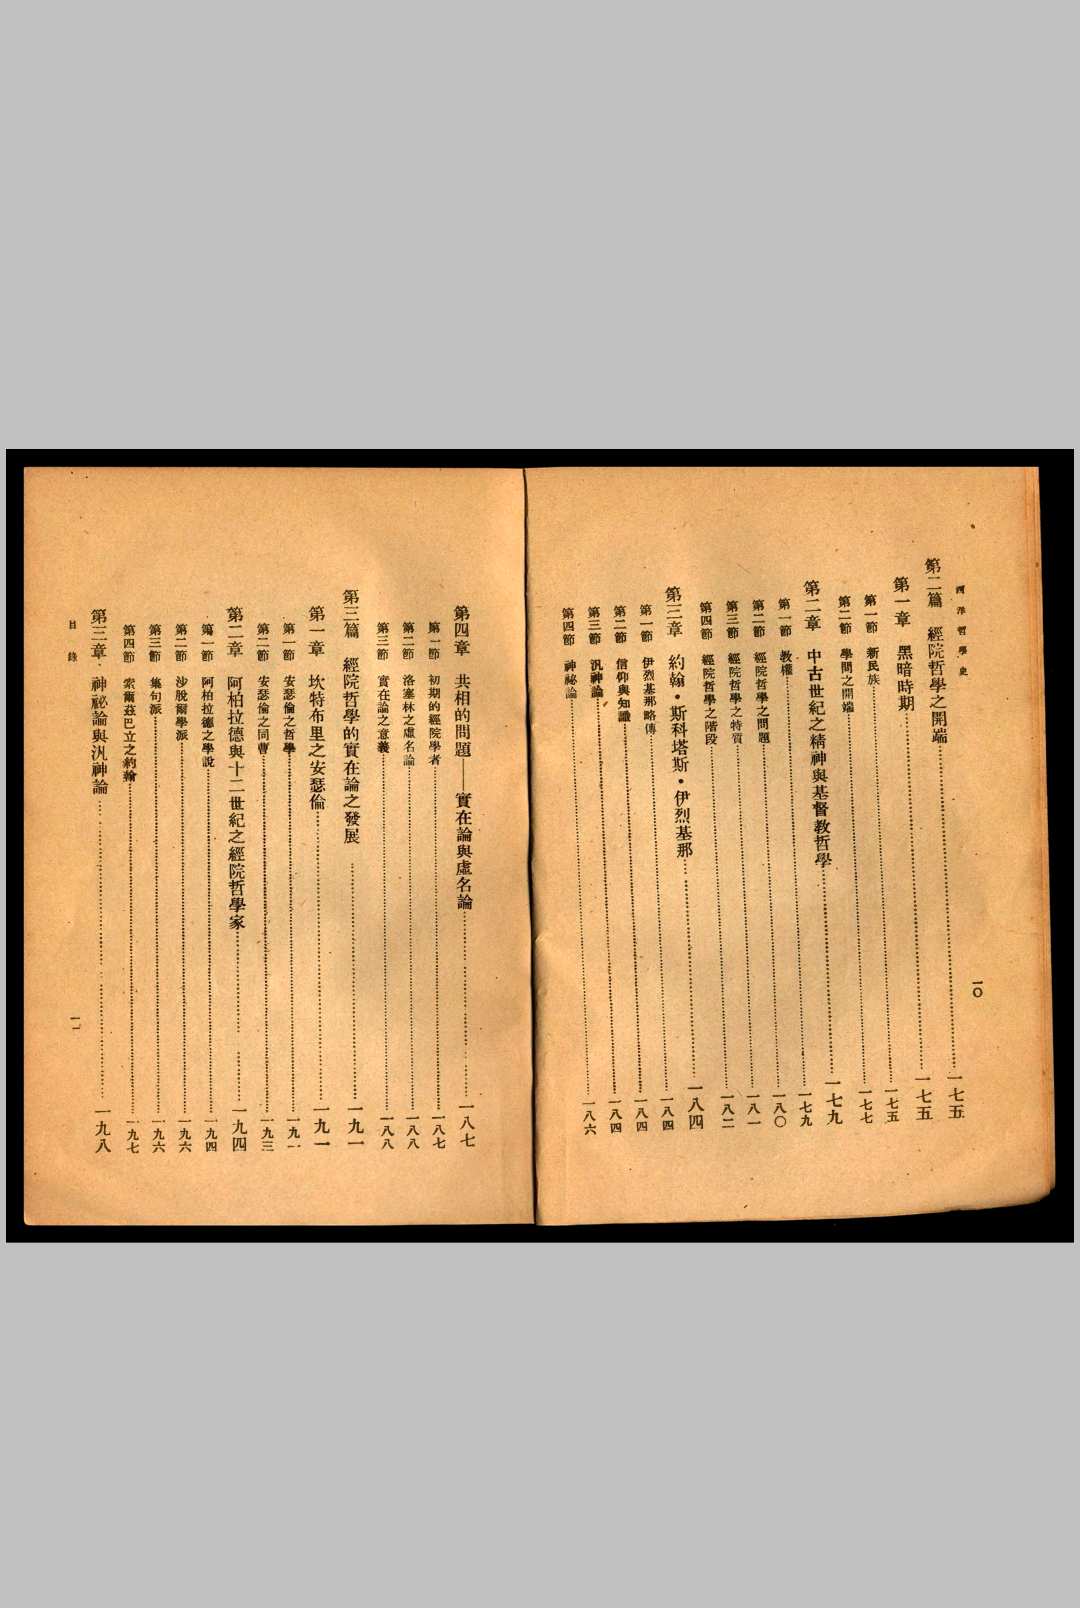 西洋哲學史
一〇
第二篇 經院哲學之開端……一七五
第一章 黑暗時期……一七五
第一節 新民族……一七五
第二節 學問之開端……一七七
第二章 中古世紀之精神與基督教哲學……一七九
第一節 教權……一七九
第二節 經院哲學之問題……一八〇
第三節 經院哲學之特質……一八一
第四節 經院哲學之階段……一八二
第三章 約翰·斯科塔斯·伊烈基那……一八四
第一節 伊烈基那略傳……一八四
第二節 信仰與知識……一八四
第三節 汎神論……一八四
第四節 神祕論……一八六
第四章 共相的問題——實在論與虛名論……一八七
第一節 初期的經院學者……一八七
第二節 洛塞林之虛名論……一八八
第三節 實在論之意義……一八八
第三篇 經院哲學的實在論之發展……一九一
第一章 坎特布里之安瑟倫……一九一
第一節 安瑟倫之哲學……一九一
第二節 安瑟倫之同曹……一九三
第二章 阿柏拉德與十二世紀之經院哲學家……一九四
第一節 阿柏拉德之學說……一九四
第二節 沙脫爾學派……一九六
第三節 集句派……一九六
第四節 索爾茲巴立之約翰……一九七
第三章 神祕論與汎神論……一九八
目錄